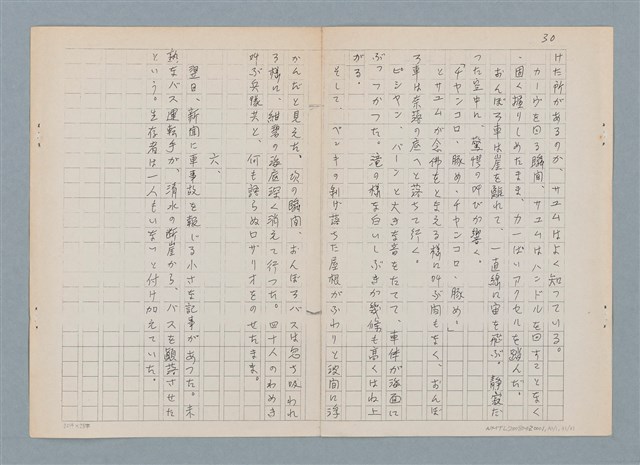 30
けた所があるのか、サユムはよく知っている。
カーヴを回る瞬間、サユムはハンドルを回すことなく
、固く握りしめたまま、力一ぱいアクセルを踏んだ。
おんぼろ車は崖を離れて、一直線に宙を飛ぶ。静寂だ
った空中に、驚愕の叫びが響く。
「チャンコロ・豚め・チャンコロ・豚め」
とサユムが念佛をとなえる様に叫ぶ間もなく、おんぼ
ろ車は奈落の底へと落ちて行く。
ピシャン、バーンと大きな音をたてて、車体が海面に
ぶっつかった。滝の様な白いしぶきが幾條も高くはね上
がる。
そして、ペンキの剥げ落ちた屋根がふわりと波間に浮
かんだと見えた、次の瞬間、おんぼろバスは忽ち吸われ
る様に、紺碧の海底深く消えて行った。四十人のわめき
叫ぶ兵隊共と、何も語らぬロザリオをのせたまま。
六、
翌日、新聞に車事故を報じる小さな記事があった。未
熟なバス運転手が、清水の断崖から、バスを顛落させた
という。生存者は一人もいないと付け加えていた。